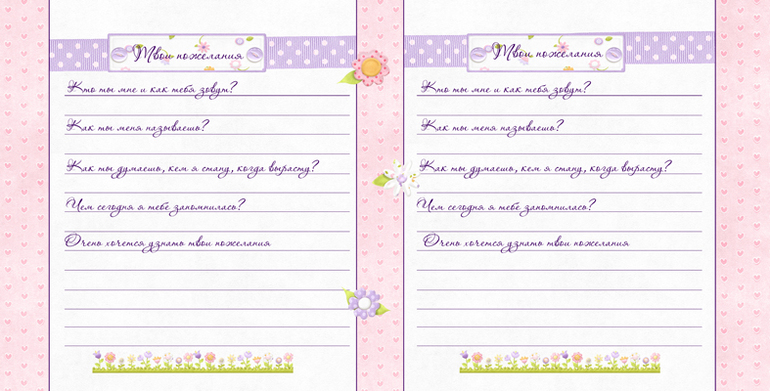 Твои пожелания
Кто ты мне и как тебя зовут?
Как ты меня называешь?
Как ты думаешь, кем я стану, когда вырасту?
Чем сегодня я тебе запомнилась?
Очень хочется дзнать твои пожелания
Твои пожелания
Кто ты мне и как тебя зовут?
Как ты меня называешь?
Как ты думаешь, кем я стану, когда вырасту?
Чем сегодня я тебе запомнилась?
Очень хочется дзнать твои пожелания